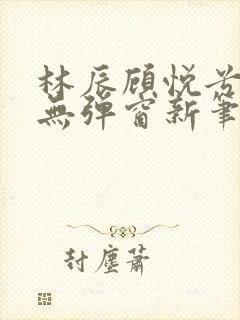 林辰顾悦兮
無彈窗新筆
封塵蕭